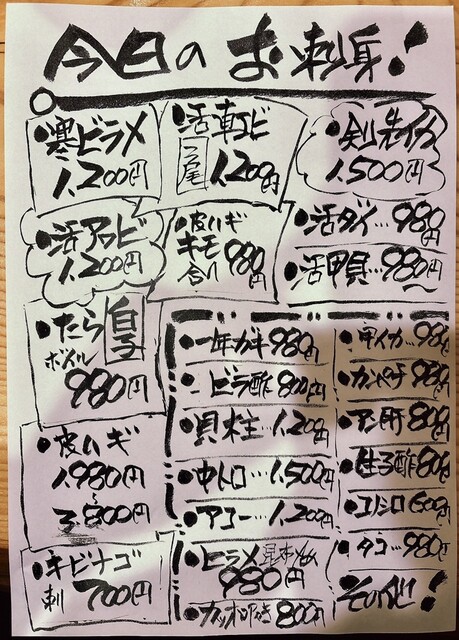 今日のお刺身!
・寒ビラメ
1,200円
・活車エビ
二尾
1,200円
・剣先イカ
1,500円
・活アワビ
1,200円
・皮ハギ
キモ
合り
980円
・活ダイ…980円
・活甲貝…980円~
・たら
白子
ボイル
980円
・皮ハギ
1,980円
~
3,800円
・キビナゴ
刺 700円
・一年ガキ 980円
・ビラ酢 800円
・貝柱…1,200円
・中トロ…1,500円
・アコー…1,200円
・ヒラメ昆布〆
980円
・カツオたたき 800円
・甲イカ…980円
・カンパチ 980円
・アン肝 800円
・生子酢 800円
・コノシロ 600円
・タコ…980円
その他!